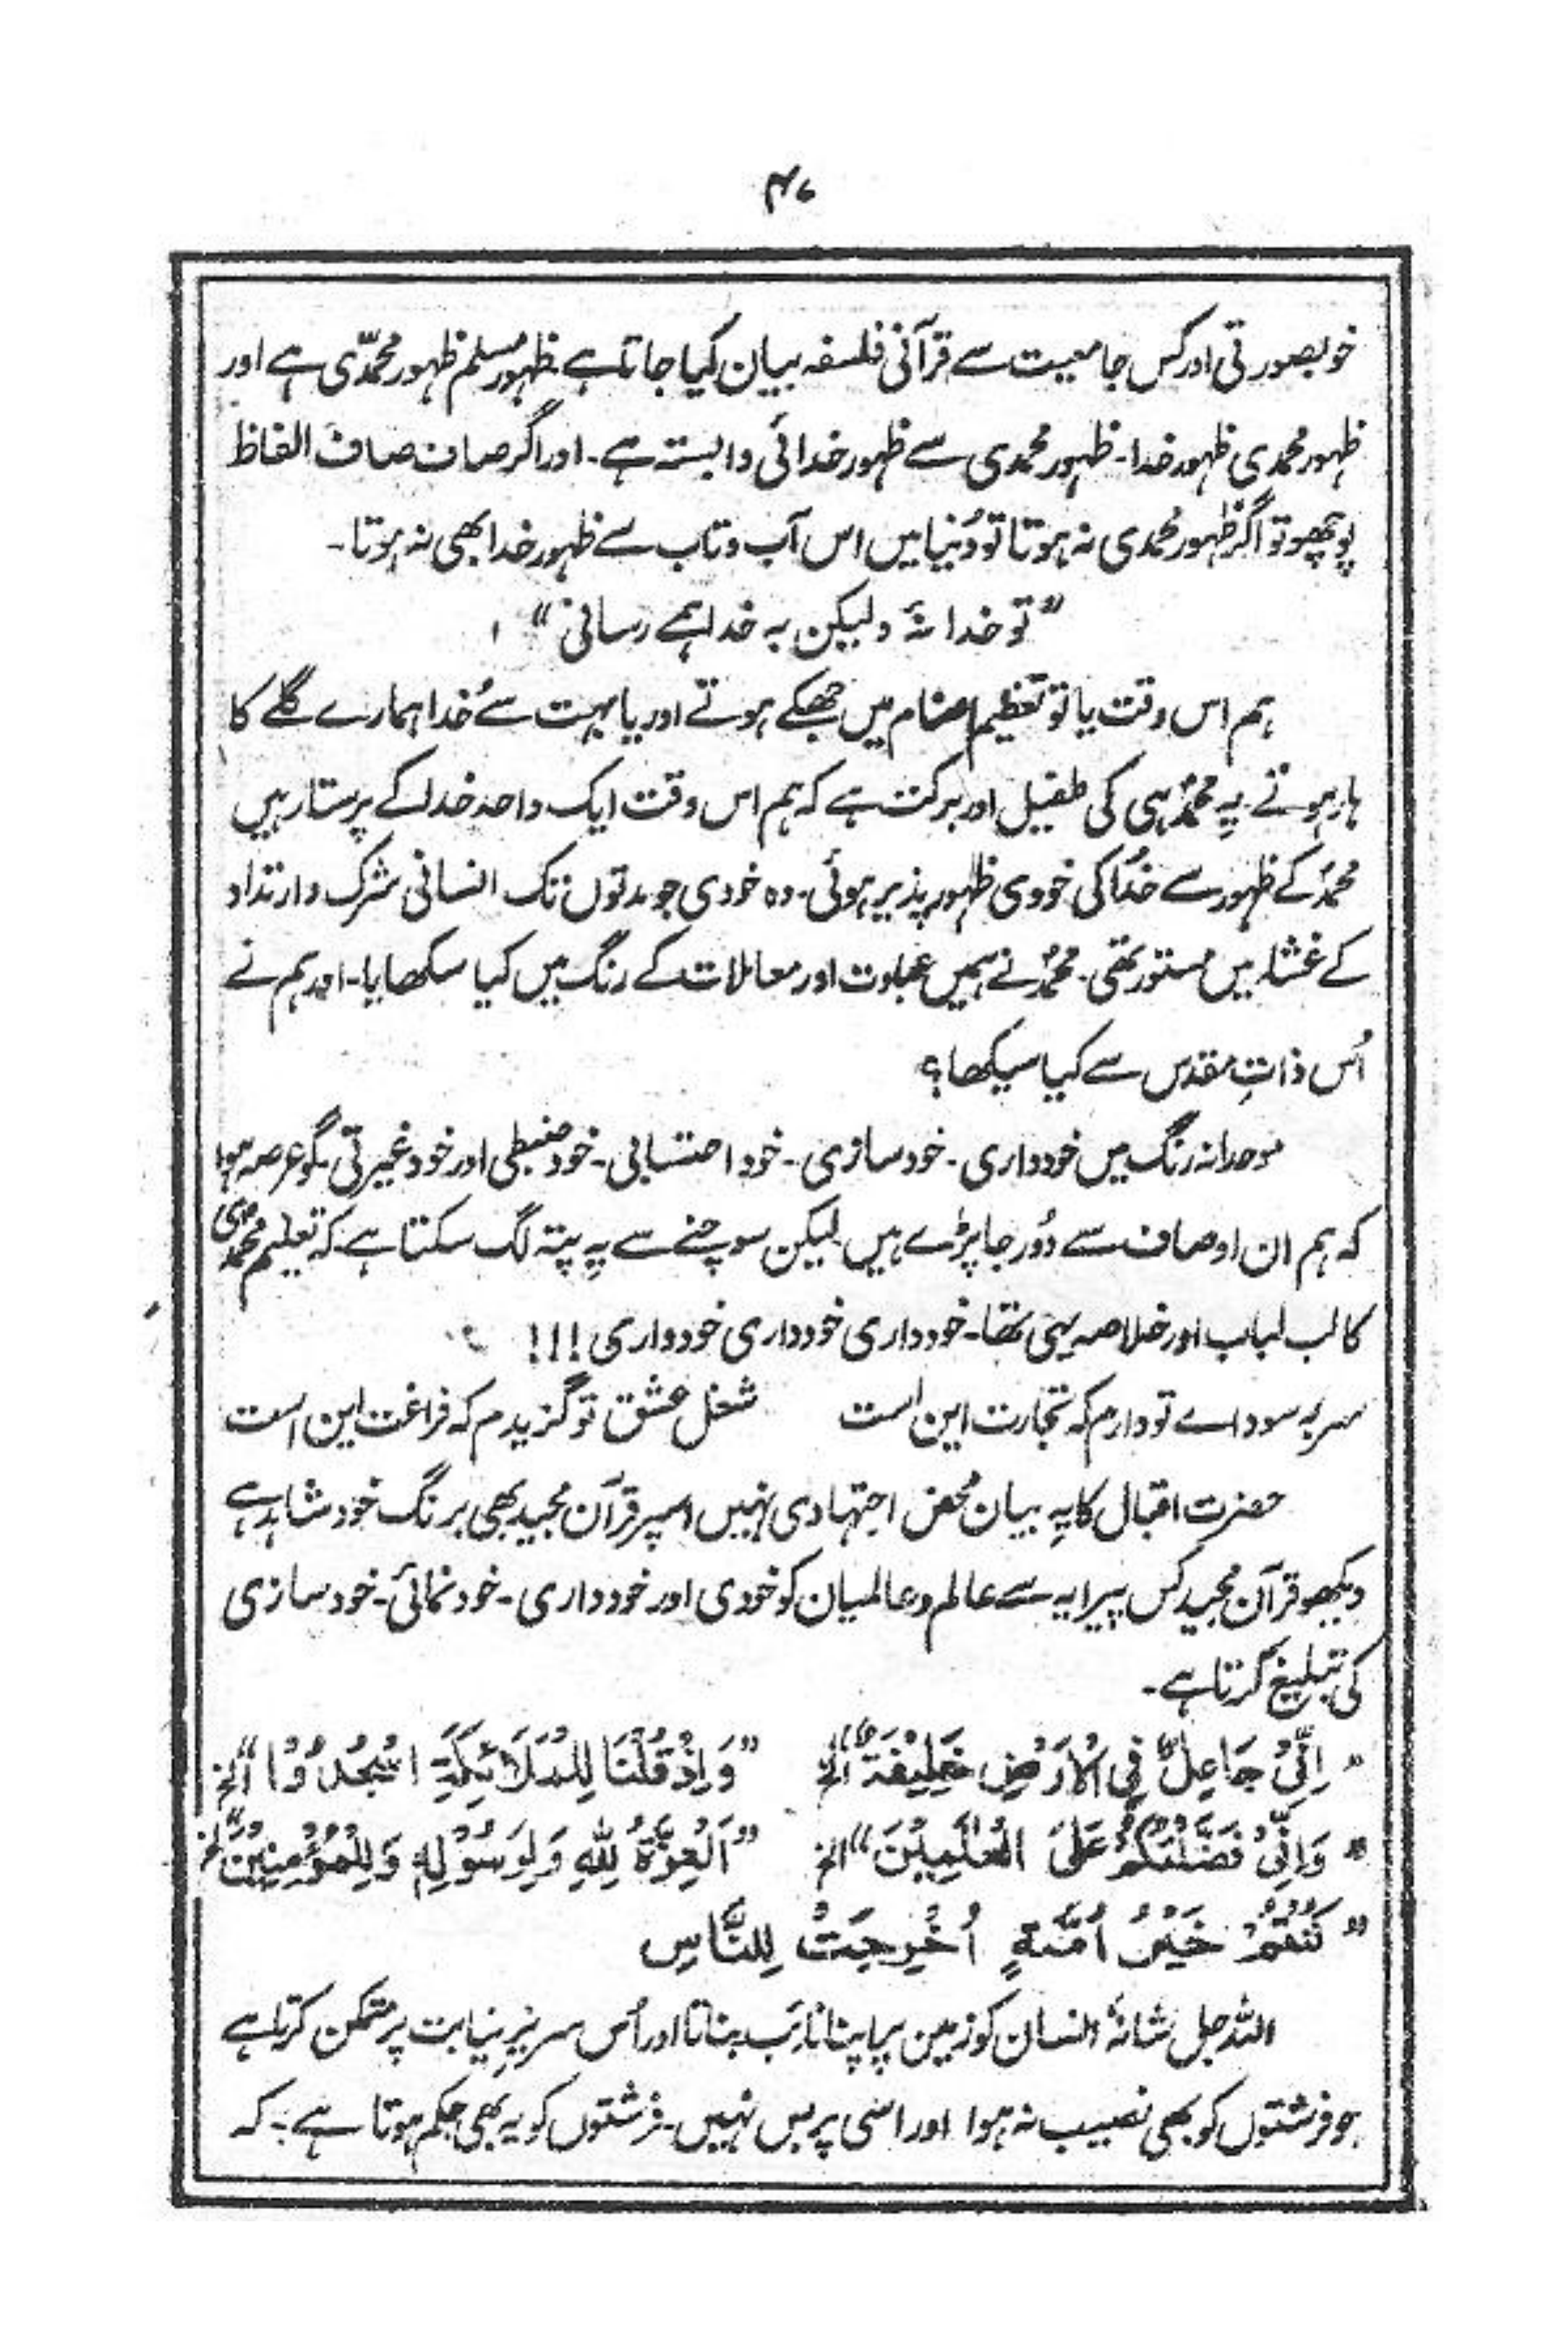 ۴۷
خوبصورتی اور کس جامعیت سے قرآنی فلسفہ بیان کیا جاتا ہے۔ ظہور مسلم ظہور محمدّی ہے اور
ظہور محمدی ظہور خدا۔ ظہور محمدی سے ظہور خدائی وابستہ ہے۔ اور اگر صاف صاف الفاظ
پوچھو تو اگر ظہور محمدی نہ ہوتا تو دُنیا میں اس آب و تاب سے ظہور خدا بھی نہ ہوتا۔
”تو خدا نۂ ولیکن بہ خدا ہمے رسانی“
ہم اس وقت یا تو تعظیم اصنام میں جھکے ہوتے اور یا بہت سے خُدا ہمارے گلے کا
ہار ہوتے یہ محمدؐ ہی کی طفیل اور برکت ہے کہ ہم اس وقت ایک واحد خدا کے پرستار ہیں
محمدؐ کے ظہور سے خُدا کی خودی ظہور پذیر ہوئی۔ وہ خودی جو مدتوں تک انسانی شرک و ارتداد
کے غشاء میں مستور تھی۔ محمدؐ نے ہمیں عبادت اور معاملات کے رنگ میں کیا سکھایا۔ اور ہم نے
اُس ذاتِ مقدس سے کیا سیکھا؟
موحدانہ رنگ میں خودداری۔ خود سازی۔ خود احتسابی۔ خود ضبطی اور خود غیرتی گو عرصہ ہوا
کہ ہم ان اوصاف سے دُور جا پڑے ہیں لیکن سوچنے سے یہ پتہ لگ سکتا ہے۔ کہ تعلیم محمدی
کا لب لباب اور خلاصہ یہی تھا۔ خودداری خودداری خودداری!!!
سر بہ سوداے تو دارم کہ تجارت این است شغل عشق تو گزیدم کہ فراغت این است
حضرت اقبال کا یہ بیان محض اجتہادی نہیں اسپر قرآن مجید بھی برنگ خود شاہد ہے
دیکھو قرآن مجید کس پیرایہ سے عالم و عالمیان کو خودی اور خودداری۔ خود نمائی۔ خود سازی
کی تبلیغ کرتا ہے۔
”اِنِّیْ جَاعِلٌ فِی الْاَرْضِ خَلِیْفَۃً“ الخ ”وَاِذْ قُلْنَا لِلْمَلَائِکَۃِ اسْجُدُوْا“ الخ
”وَاِنِّیْ فَضَّلْتُکُمْ عَلَی الْعٰلَمِیْنَ“ الخ ”اَلْعِزَّۃُ لِلّٰہِ وَلِرَسُوْلِہٖ وَلِلْمُؤْمِنِیْنَ“ الخ
”کُنْتُمْ خَیْرَ اُمَّۃٍ اُخْرِجَتْ لِلنَّاسِ
اللہ جل شانہٗ انسان کو زمین پر اپنا نائب بناتا اور اُس سریرِ نیابت پر متمکن کرتا ہے
جو فرشتوں کو بھی نصیب نہ ہوا اور اسی پر بس نہیں۔ فرشتوں کو یہ بھی حکم ہوتا ہے۔ کہ